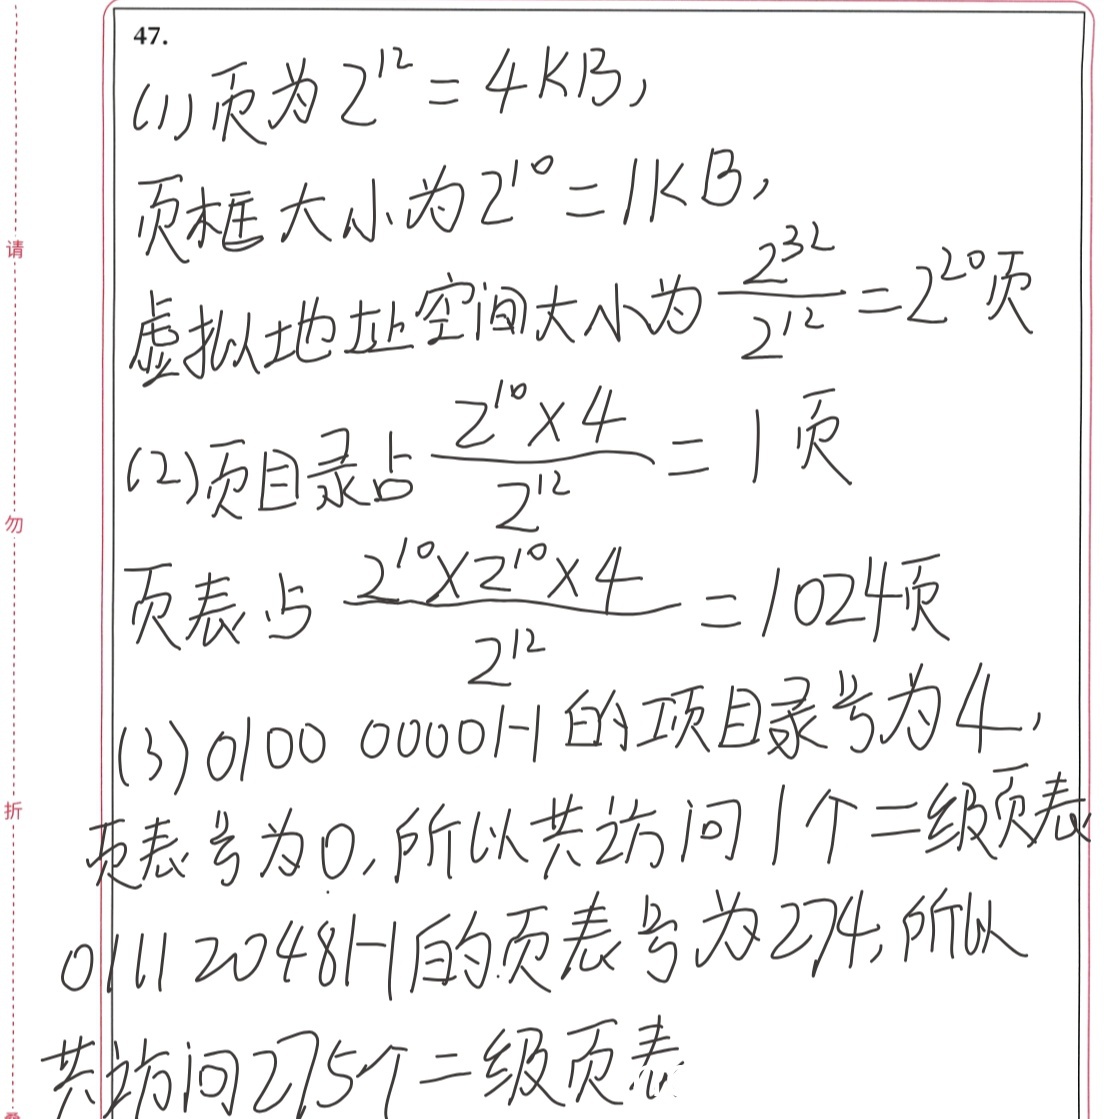 47.
(1)页为 2^12 = 4KB,
页框大小为 2^10 = 1KB,
虚拟地址空间大小为 2^32 / 2^12 = 2^20 页
(2)页目录占 2^10 × 4 / 2^12 = 1 页
页表占 2^10 × 2^10 × 4 / 2^12 = 1024 页
(3) 0100 0000H 的项目录号为 4,
页表号为 0, 所以共访问 1 个二级页表
0111 2048H 的页表号为 274, 所以
共访问 275 个二级页表
请
勿
折